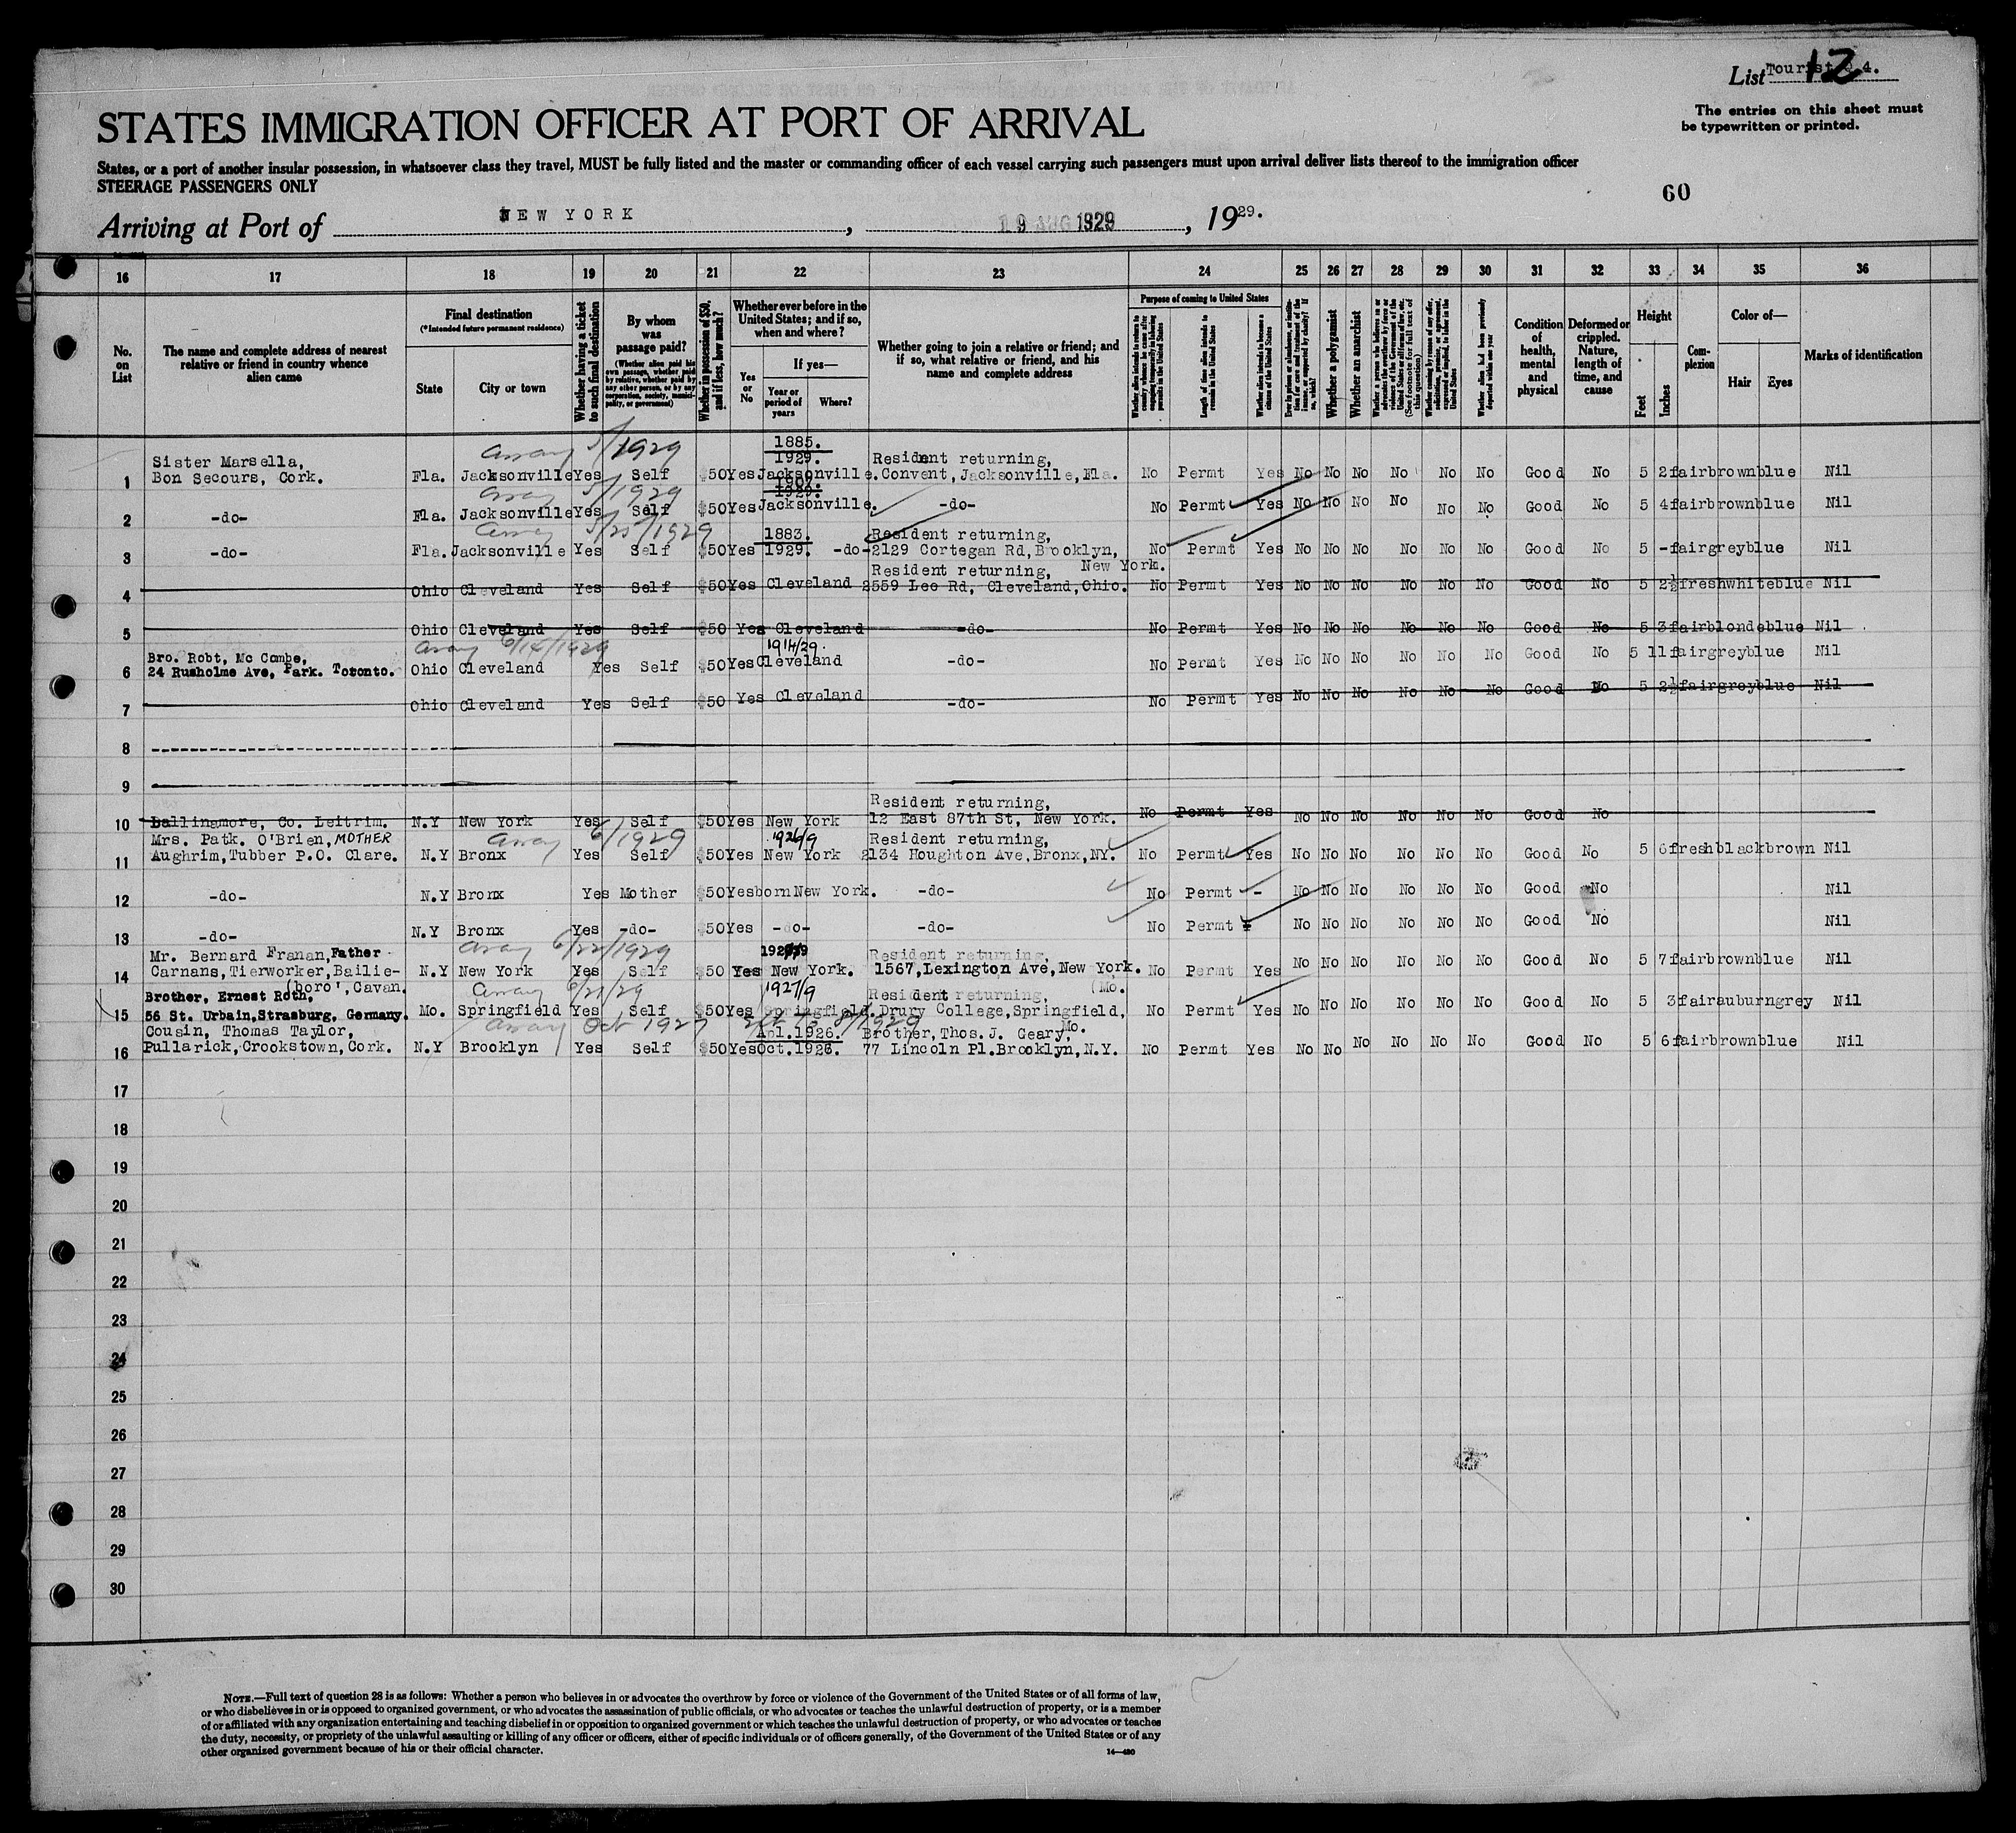 List Tourist 4. 12
The entries on this sheet must
be typewritten or printed.
STATES IMMIGRATION OFFICER AT PORT OF ARRIVAL
States, or a port of another insular possession, in whatsoever class they travel, MUST be fully listed and the master or commanding officer of each vessel carrying such passengers must upon arrival deliver lists thereof to the immigration officer
STEERAGE PASSENGERS ONLY
60
Arriving at Port of NEW YORK, 19 AUG 1929, 1929.
16 17 18 19 20 21 22 23 24 25 26 27 28 29 30 31 32 33 34 35 36
No. on List
The name and complete address of nearest relative or friend in country whence alien came
Final destination
(*Intended future permanent residence)
State
City or town
Whether having a ticket to such final destination
By whom was passage paid?
(Whether alien paid his own passage, whether paid by relative, whether paid by any other person, or by any corporation, society, municipality, or government)
Whether in possession of $50, and if less, how much?
Whether ever before in the United States; and if so, when and where?
Yes or No
If yes—
Year or period of years
Where?
Whether going to join a relative or friend; and if so, what relative or friend, and his name and complete address
Purpose of coming to United States
Whether alien intends to return to country whence he came after engaging temporarily in laboring pursuits in the United States
Length of time alien intends to remain in the United States
Whether alien intends to become a citizen of the United States
Ever in prison or almshouse, or institution for care and treatment of the insane, or supported by charity? If so, which?
Whether a polygamist
Whether an anarchist
Whether a person who believes in or advocates the overthrow by force or violence of the Government of the United States or all forms of law, etc. (See footnote for full text of this question)
Whether coming by reason of any offer, solicitation, promise, or agreement, expressed or implied, to labor in the United States
Whether alien had been previously deported within one year
Condition of health, mental and physical
Deformed or crippled. Nature, length of time, and cause
Height
Feet
Inches
Complexion
Color of—
Hair
Eyes
Marks of identification
away 5/1929 1885.
Sister Marsella, 1929. Resident returning,
1 Bon Secours, Cork. Fla. Jacksonville Yes Self $50 Yes Jacksonville. Convent, Jacksonville, Fla. No Permt Yes No No No No No No Good No 5 2 fair brown blue Nil
away 5/1929 1907. 1929.
2 -do- Fla. Jacksonville Yes Self $50 Yes Jacksonville. -do- No Permt Yes No No No No No No Good No 5 4 fair brown blue Nil
away 5/25/1929 1883. Resident returning,
3 -do- Fla. Jacksonville Yes Self $50 Yes 1929. -do- 2129 Cortegan Rd, Brooklyn, New York. No Permt Yes No No No No No No Good No 5 - fair grey blue Nil
Resident returning,
4 Ohio Cleveland Yes Self $50 Yes Cleveland 2559 Lee Rd, Cleveland, Ohio. No Permt Yes No No No No No No Good No 5 2½ fresh white blue Nil
5 Ohio Cleveland Yes Self $50 Yes Cleveland -do- No Permt Yes No No No No No No Good No 5 3 fair blonde blue Nil
away 6/14/1929 1914/29.
Bro. Robt, Mc Combe,
6 24 Rusholme Ave, Park. Toronto. Ohio Cleveland Yes Self $50 Yes Cleveland -do- No Permt Yes No No No No No No Good No 5 11 fair grey blue Nil
7 Ohio Cleveland Yes Self $50 Yes Cleveland -do- No Permt Yes No No No No No No Good No 5 2½ fair grey blue Nil
8
9
Resident returning,
10 Ballingmore, Co. Leitrim. N.Y New York Yes Self $50 Yes New York 12 East 87th St, New York. No Permt Yes No No No No No No Good No
Mrs. Patk. O'Brien, MOTHER away 6/1929 1926/9 Resident returning,
11 Aughrim, Tubber P.O. Clare. N.Y Bronx Yes Self $50 Yes New York 2134 Houghton Ave, Bronx, NY. No Permt Yes No No No No No No Good No 5 6 fresh black brown Nil
12 -do- N.Y Bronx Yes Mother $50 Yes born New York. -do- No Permt - No No No No No No Good No Nil
13 -do- N.Y Bronx Yes -do- $50 Yes -do- -do- No Permt No No No No No No Good No Nil
Mr. Bernard Franan, Father away 6/22/1929 Resident returning,
14 Carnans, Tierworker, Bailie- (boro', Cavan. N.Y New York Yes Self $50 Yes New York. 1567, Lexington Ave, New York. No Permt Yes No No No No No No Good No 5 7 fair brown blue Nil
Brother, Ernest Roth, away 6/21/29 1927/9 Resident returning, (Mo.
15 56 St. Urbain, Strasburg, Germany. Mo. Springfield Yes Self $50 Yes Springfield. Drury College, Springfield, Mo. No Permt Yes No No No No No No Good No 5 3 fair auburn grey Nil
Cousin, Thomas Taylor, away Oct 1927 Apl. 1926. Brother, Thos. J. Geary,
16 Pullarick, Crookstown, Cork. N.Y Brooklyn Yes Self $50 Yes Oct. 1926. 77 Lincoln Pl. Brooklyn, N.Y. No Permt Yes No No No No No No Good No 5 6 fair brown blue Nil
17
18
19
20
21
22
23
24
25
26
27
28
29
30
NOTE.—Full text of question 28 is as follows: Whether a person who believes in or advocates the overthrow by force or violence of the Government of the United States or of all forms of law,
or who disbelieves in or is opposed to organized government, or who advocates the assassination of public officials, or who advocates or teaches the unlawful destruction of property, or is a member
of or affiliated with any organization entertaining and teaching disbelief in or opposition to organized government or which teaches the unlawful destruction of property, or who advocates or teaches
the duty, necessity, or propriety of the unlawful assaulting or killing of any officer or officers, either of specific individuals or of officers generally, of the Government of the United States or of any
other organized government because of his or their official character.
14—480